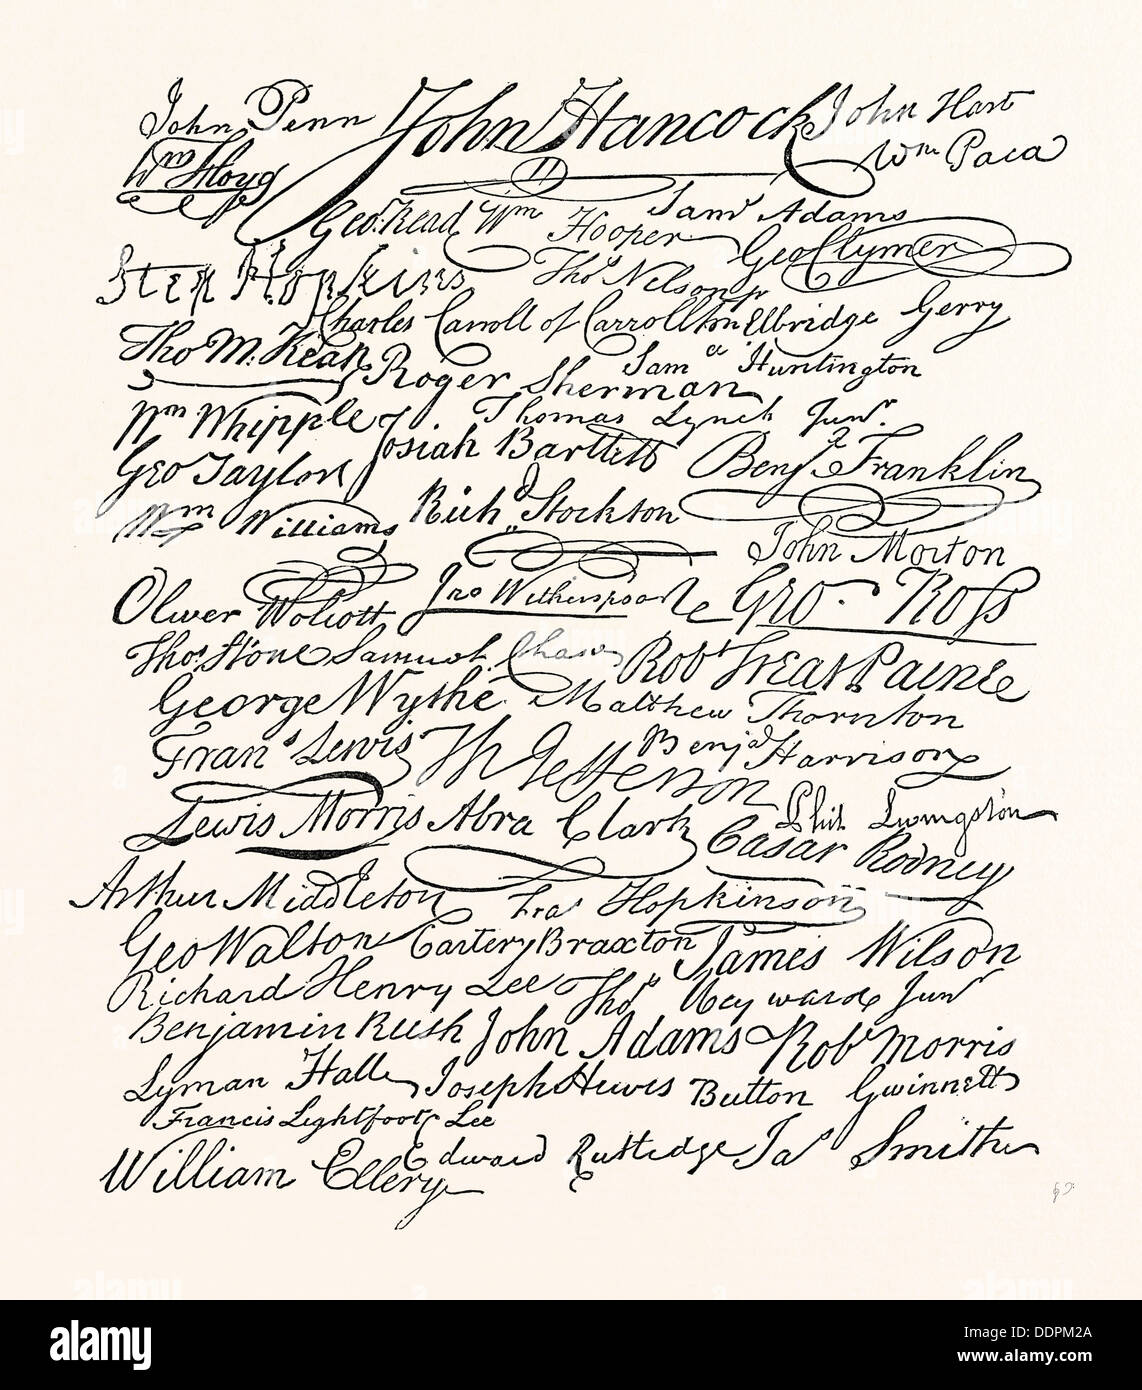 John Penn John Hancock John Hart
Wm Floyd Wm Paca
Geo. Read Wm Hooper Saml Adams
Step Hopkins Thos Nelson jr Geo Clymer
Charles Carroll of Carrollton Elbridge Gerry
Tho M. Kean Roger Sherman Saml Huntington
Wm Whipple Josiah Bartlett Thomas Lynch Junr.
Geo Taylor Benj. Franklin
Wm Williams Richd Stockton John Morton
Oliver Wolcott Jno Witherspoon Geo. Ross
Thos. Stone Samuel Chase Robt Treat Paine
George Wythe Matthew Thornton
Frans Lewis Th Jefferson Benja Harrison
Lewis Morris Abra Clark Phil Livingston
Cæsar Rodney
Arthur Middleton Fras Hopkinson
Geo Walton Carter Braxton James Wilson
Richard Henry Lee Thos Heyward Junr
Benjamin Rush John Adams Robt Morris
Lyman Hall Joseph Hewes Button Gwinnett
Francis Lightfoot Lee
William Ellery Edward Rutledge Jas Smith
alamy
Image ID: DDPM2A
www.alamy.com